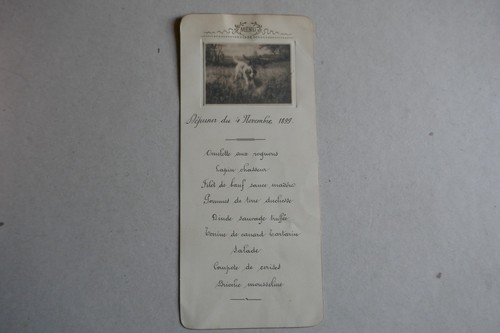 MENU
Déjeuner du 4 Novembre 1899
Omelette aux rognons
Lapin chasseur
Filet de bœuf sauce madère
Pommes de terre Anchette
Dinde sauvage truffée
Terrine de canard
Salade
Compote de cerises
Brioche mousseline